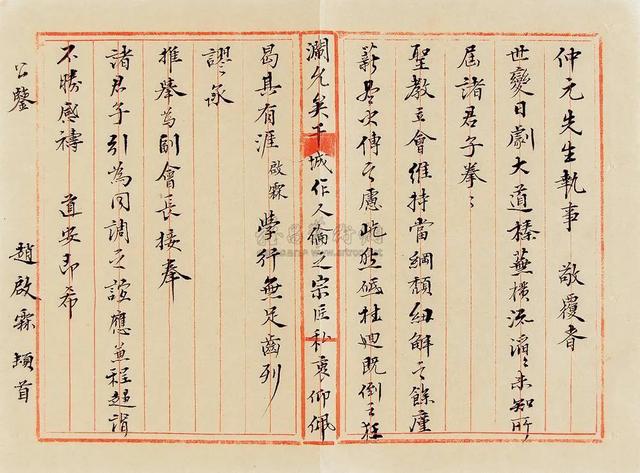 仲元先生執事 敬覆者
世變日劇大道榛蕪橫流滔滔未知所
屆諸君子拳拳
聖教立會維持當綱頹紐解之餘廑
薪盡火傳之慮屹然砥柱迴既倒之狂
瀾允矣干城作人倫之宗匠私衷仰佩
曷其有涯啟霖學行無足齒列
謬承
推舉為副會長接奉
諸君子引為同調之誼應兼程趨詣
不勝感禱 道安即希
公鑒 趙啟霖頓首